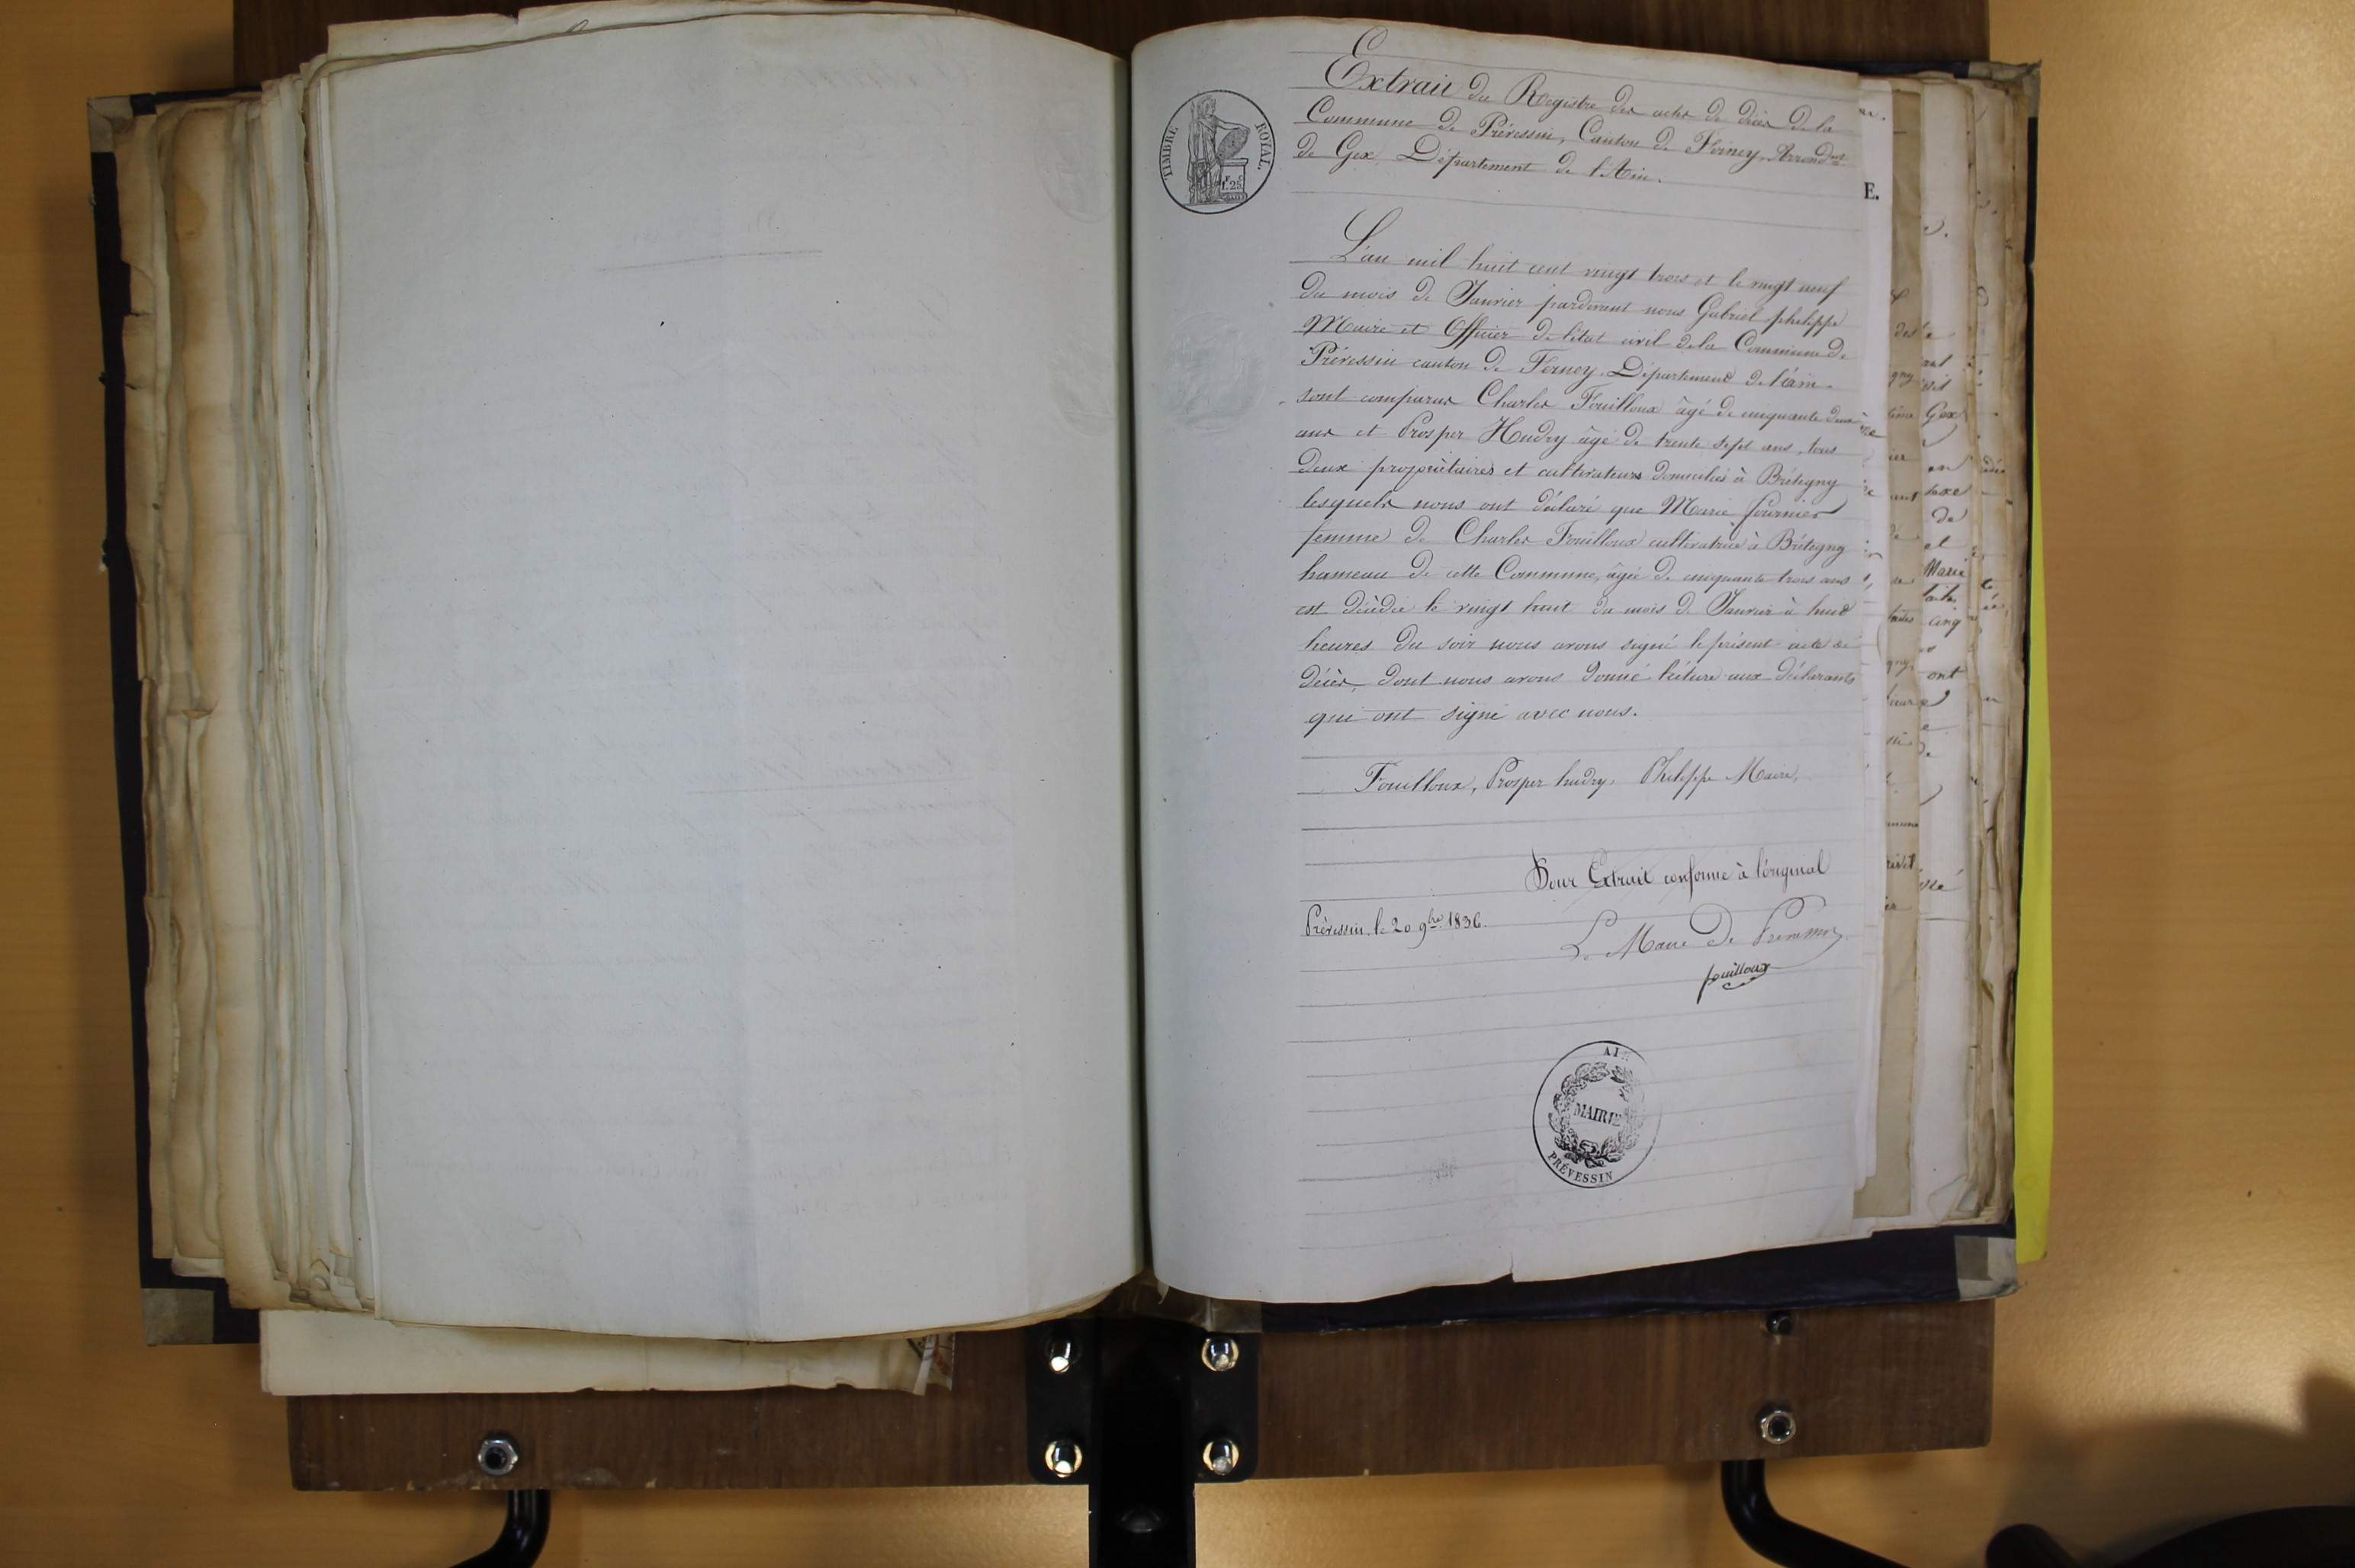 TIMBRE ROYAL.
1.25
Extrait du Registre des actes de décès de la
Commune de Prévessin, Canton de Ferney, Arrondmt
de Gex, Département de l'Ain.
L'an mil huit cent vingt trois et le vingt neuf
du mois de Janvier pardevant nous Gabriel philippe
Maire et Officier de l'état civil de la Commune de
Prévessin canton de Ferney. Département de l'ain.
sont comparus Charles Fouilloux âgé de cinquante deux
ans et Prosper Hudry âgé de trente sept ans, tous
deux propriétaires et cultivateurs domiciliés à Brétigny
lesquels nous ont déclaré que Marie fournier
femme de Charles Fouilloux cultivatrice à Brétigny
hameau de cette Commune, âgée de cinquante trois ans
est décédée le vingt huit du mois de Janvier à huit
heures du soir nous avons signé le présent acte de
décès, dont nous avons donné lécture aux déclarants
qui ont signé avec nous.
Fouilloux, Prosper hudry, Philippe Maire,
Pour Extrait conforme à l'original
Prévessin, le 20 9bre 1836.
Le Maire De Prévessin
fouilloux
AIN
MAIRIE
PRÉVESSIN
E.
Gex
Marie
cinq
ont